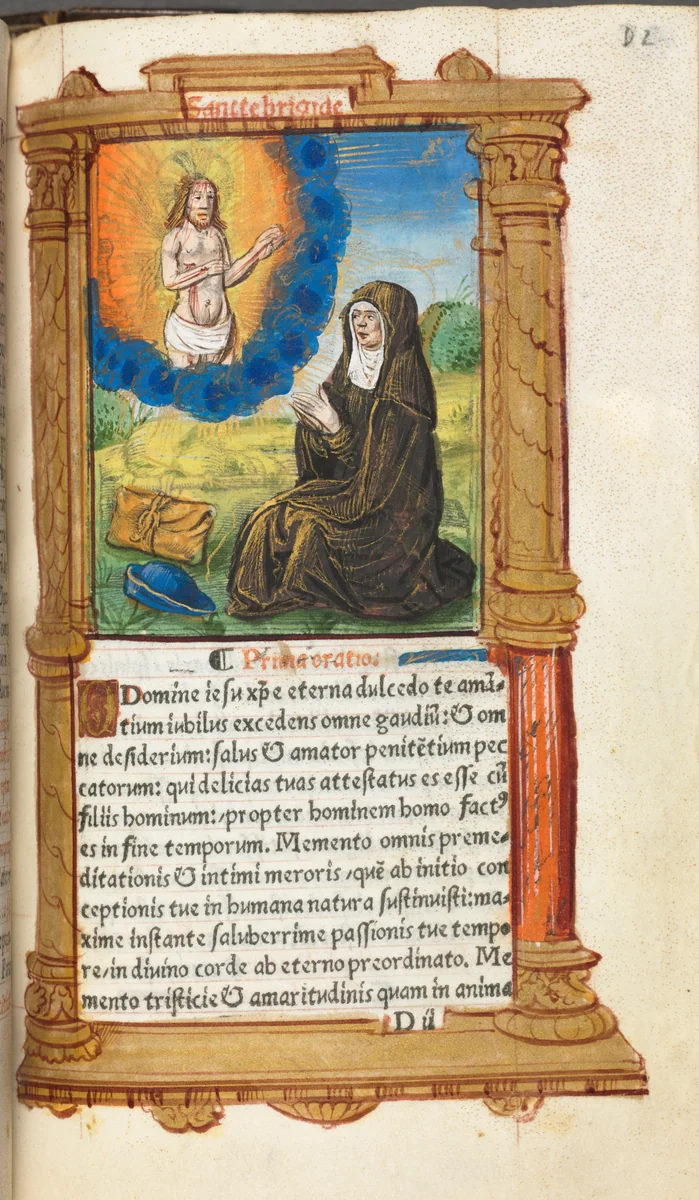 D 2
Sancte brigide
¶ Prima oratio:
O Domine iesu xp̄e eterna dulcedo te amã-
tium iubilus excedens omne gaudiũ: & om
ne desiderium: salus & amator penitẽtium pec
catorum: qui delicias tuas attestatus es esse cũ
filiis hominum: propter hominem homo factꝰ
es in fine temporum. Memento omnis preme-
ditationis & intimi meroris / quẽ ab initio con
ceptionis tue in humana natura sustinuisti: ma-
xime instante saluberrime passionis tue tempo
re / in diuino corde ab eterno preordinato. Me
mento tristicie & amaritudinis quam in anima
D ii